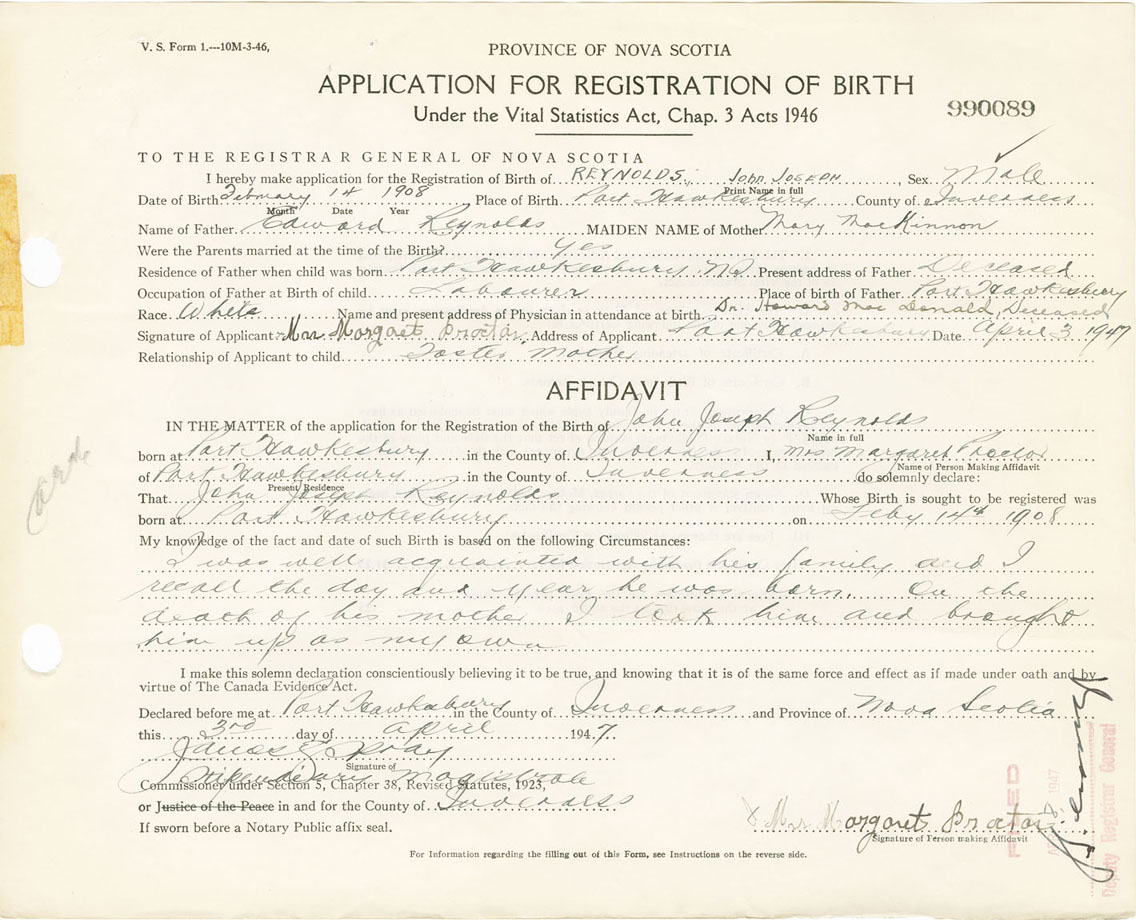 V. S. Form 1.---10M-3-46,
PROVINCE OF NOVA SCOTIA
APPLICATION FOR REGISTRATION OF BIRTH
990089
Under the Vital Statistics Act, Chap. 3 Acts 1946
TO THE REGISTRAR GENERAL OF NOVA SCOTIA
I hereby make application for the Registration of Birth of REYNOLDS, JOHN JOSEPH, Sex Male
Print Name in full
Date of Birth February 14 1908, Place of Birth Port Hawkesbury County of Inverness
Month Date Year
Name of Father Edward Reynolds MAIDEN NAME of Mother Mary MacKinnon
Were the Parents married at the time of the Birth? Yes
Residence of Father when child was born Port Hawkesbury NS Present address of Father Deceased
Occupation of Father at Birth of child Labourer Place of birth of Father Port Hawkesbury
Race White Name and present address of Physician in attendance at birth Dr. Howard MacDonald, Deceased
Signature of Applicant Mrs Margaret Proctor Address of Applicant Port Hawkesbury Date April 3 1947
Relationship of Applicant to child Foster Mother
AFFIDAVIT
IN THE MATTER of the application for the Registration of the Birth of John Joseph Reynolds
Name in full
born at Port Hawkesbury in the County of Inverness I, Mrs. Margaret Proctor
Name of Person Making Affidavit
of Port Hawkesbury in the County of Inverness do solemnly declare:
Present Residence
That John Joseph Reynolds Whose Birth is sought to be registered was
born at Port Hawkesbury on Feby 14th 1908
My knowledge of the fact and date of such Birth is based on the following Circumstances:
I was well acquainted with his family and I
recall the day and year he was born. On the
death of his mother I took him and brought
him up as my own
I make this solemn declaration conscientiously believing it to be true, and knowing that it is of the same force and effect as if made under oath and by
virtue of The Canada Evidence Act.
Declared before me at Port Hawkesbury in the County of Inverness and Province of Nova Scotia
this 3rd day of April 1947
James
Signature of
Stipendiary Magistrate
Commissioner under Section 5, Chapter 38, Revised Statutes, 1923,
or Justice of the Peace in and for the County of Inverness
If sworn before a Notary Public affix seal.
X Mrs Margaret Proctor
Signature of Person making Affidavit
For Information regarding the filling out of this Form, see Instructions on the reverse side.
Card
FILED
1947
Deputy Registrar General